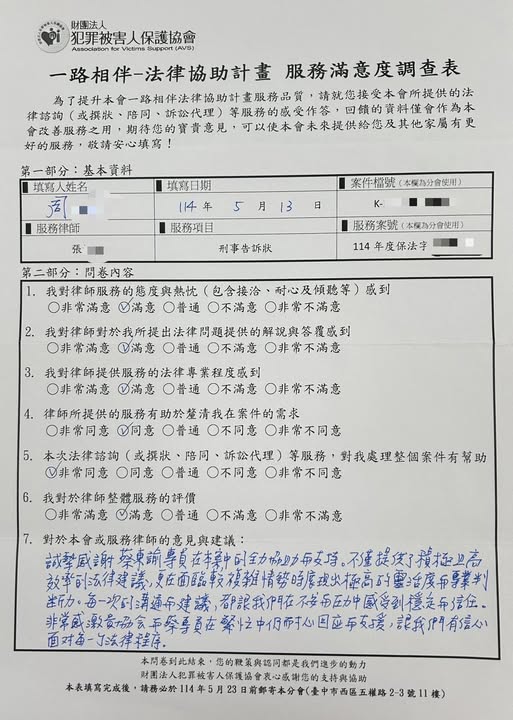 財團法人
犯罪被害人保護協會
Association for Victims Support (AVS)
一路相伴-法律協助計畫 服務滿意度調查表
為了提升本會一路相伴法律協助計畫服務品質，請就您接受本會所提供的
法律諮詢（或撰狀、陪同、訴訟代理）等服務的感受作答，回饋的資料僅會作為本
會改善服務之用，期待您的寶貴意見，可以使本會未來提供給您及其他家屬有更
好的服務，敬請安心填寫！
第一部分：基本資料
填寫人姓名 填寫日期 案件檔號（本欄為分會使用）
周 114 年 5 月 13 日 K-
服務律師 服務項目 服務案號（本欄為分會使用）
張 刑事告訴狀 114 年度保法字
第二部分：問卷內容
1. 我對律師服務的態度與熱忱（包含接洽、耐心及傾聽等）感到
○非常滿意 ○滿意 ○普通 ○不滿意 ○非常不滿意
2. 我對律師對於我所提出法律問題提供的解說與答覆感到
○非常滿意 ○滿意 ○普通 ○不滿意 ○非常不滿意
3. 我對律師提供服務的法律專業程度感到
○非常滿意 ○滿意 ○普通 ○不滿意 ○非常不滿意
4. 律師所提供的服務有助於釐清我在案件的需求
○非常同意 ○同意 ○普通 ○不同意 ○非常不同意
5. 本次法律諮詢（或撰狀、陪同、訴訟代理）等服務，對我處理整個案件有幫助
○非常同意 ○同意 ○普通 ○不同意 ○非常不同意
6. 我對於律師整體服務的評價
○非常滿意 ○滿意 ○普通 ○不滿意 ○非常不滿意
7. 對於本會或服務律師的意見與建議：
誠摯感謝 蔡東諭專員在本案中的全力協助和支持。不僅提供了積極且高
效率的法律建議，更在面臨較複雜情勢時展現出極高的靈活度和專業判
斷力。每一次的溝通和建議，都讓我們在不安和壓力中感受到穩定和信任。
非常感激協會和蔡專員在繁忙中仍耐心回應和支援，讓我們有信心
面對每一次法律程序。
本問卷到此結束，您的鞭策與認同都是我們進步的動力
財團法人犯罪被害人保護協會衷心感謝您的支持與協助
本表填寫完成後，請務必於 114 年 5 月 23 日前郵寄本分會(臺中市西區五權路 2-3 號 11 樓)